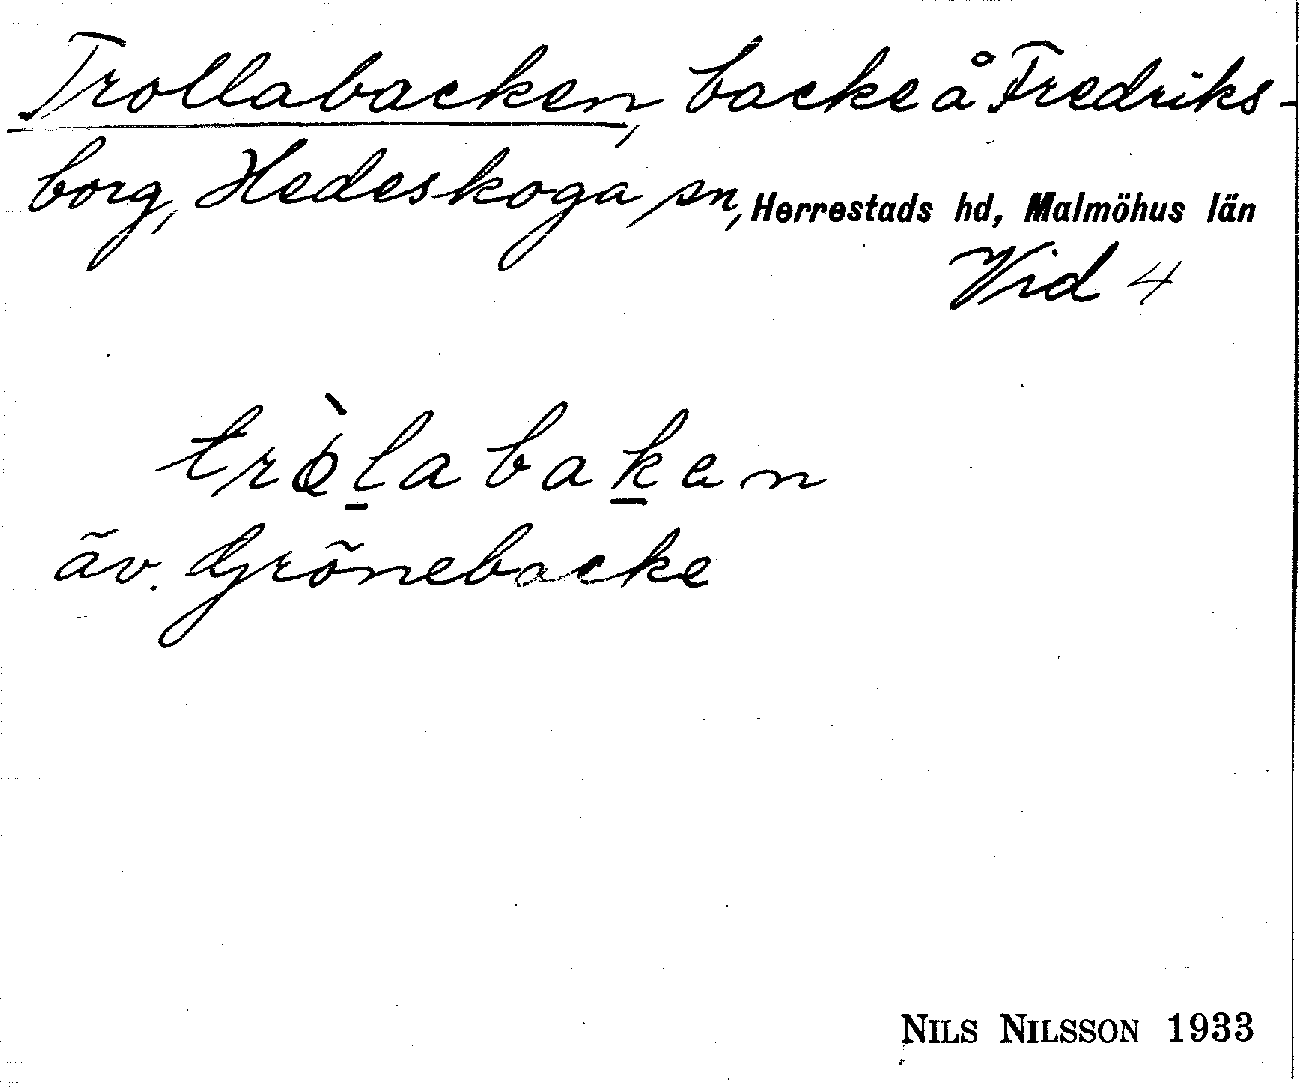 Trollabacken, backe å Fredriks-
borg, Hedeskoga sn, Herrestads hd, Malmöhus län
Vid 4
tròl̲abak̲en
äv. Grönebacke
NILS NILSSON 1933